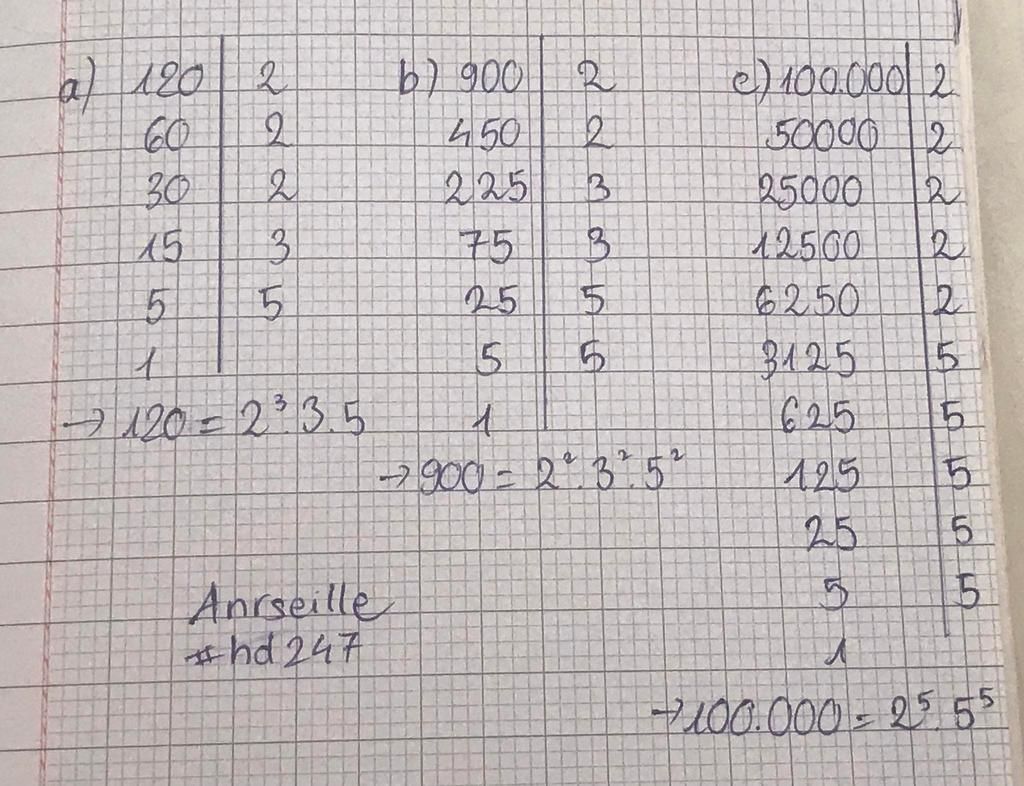 a) 120 | 2
60 | 2
30 | 2
15 | 3
5 | 5
1
→ 120 = 2³.3.5
b) 900 | 2
450 | 2
225 | 3
75 | 3
25 | 5
5 | 5
1
→ 900 = 2².3².5²
c) 100.000 | 2
50000 | 2
25000 | 2
12500 | 2
6250 | 2
3125 | 5
625 | 5
125 | 5
25 | 5
5 | 5
1
→ 100.000 = 2⁵.5⁵
Anrseille
#hd247